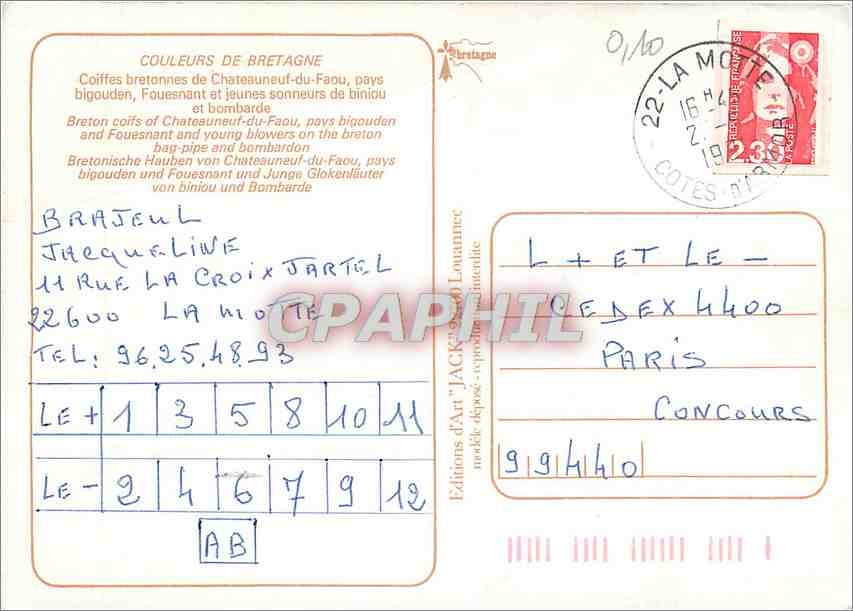 COULEURS DE BRETAGNE
Coiffes bretonnes de Chateauneuf-du-Faou, pays
bigouden, Fouesnant et jeunes sonneurs de biniou
et bombarde
Breton coifs of Chateauneuf-du-Faou, pays bigouden
and Fouesnant and young blowers on the breton
bag-pipe and bombardon
Bretonische Hauben von Chateauneuf-du-Faou, pays
bigouden und Fouesnant und Junge Glokenläuter
von biniou und Bombarde
BRAJEUL
JACQUELINE
11 RUE LA CROIX JARTEL
22600 LA MOTTE
TEL: 96.25.48.93
LE + 1 3 5 8 10 11
LE - 2 4 6 7 9 12
AB
bretagne
Editions d'Art "JACK" Louannec
modèle déposé - reproduction interdite
0,10
22-LA MOTTE
16 H 4
2. -
19
COTES-D'ARMOR
REPUBLIQUE FRANÇAISE
2,3
LA POSTE
L + ET LE -
CEDEX 4400
PARIS
CONCOURS
99440
CPAPHIL